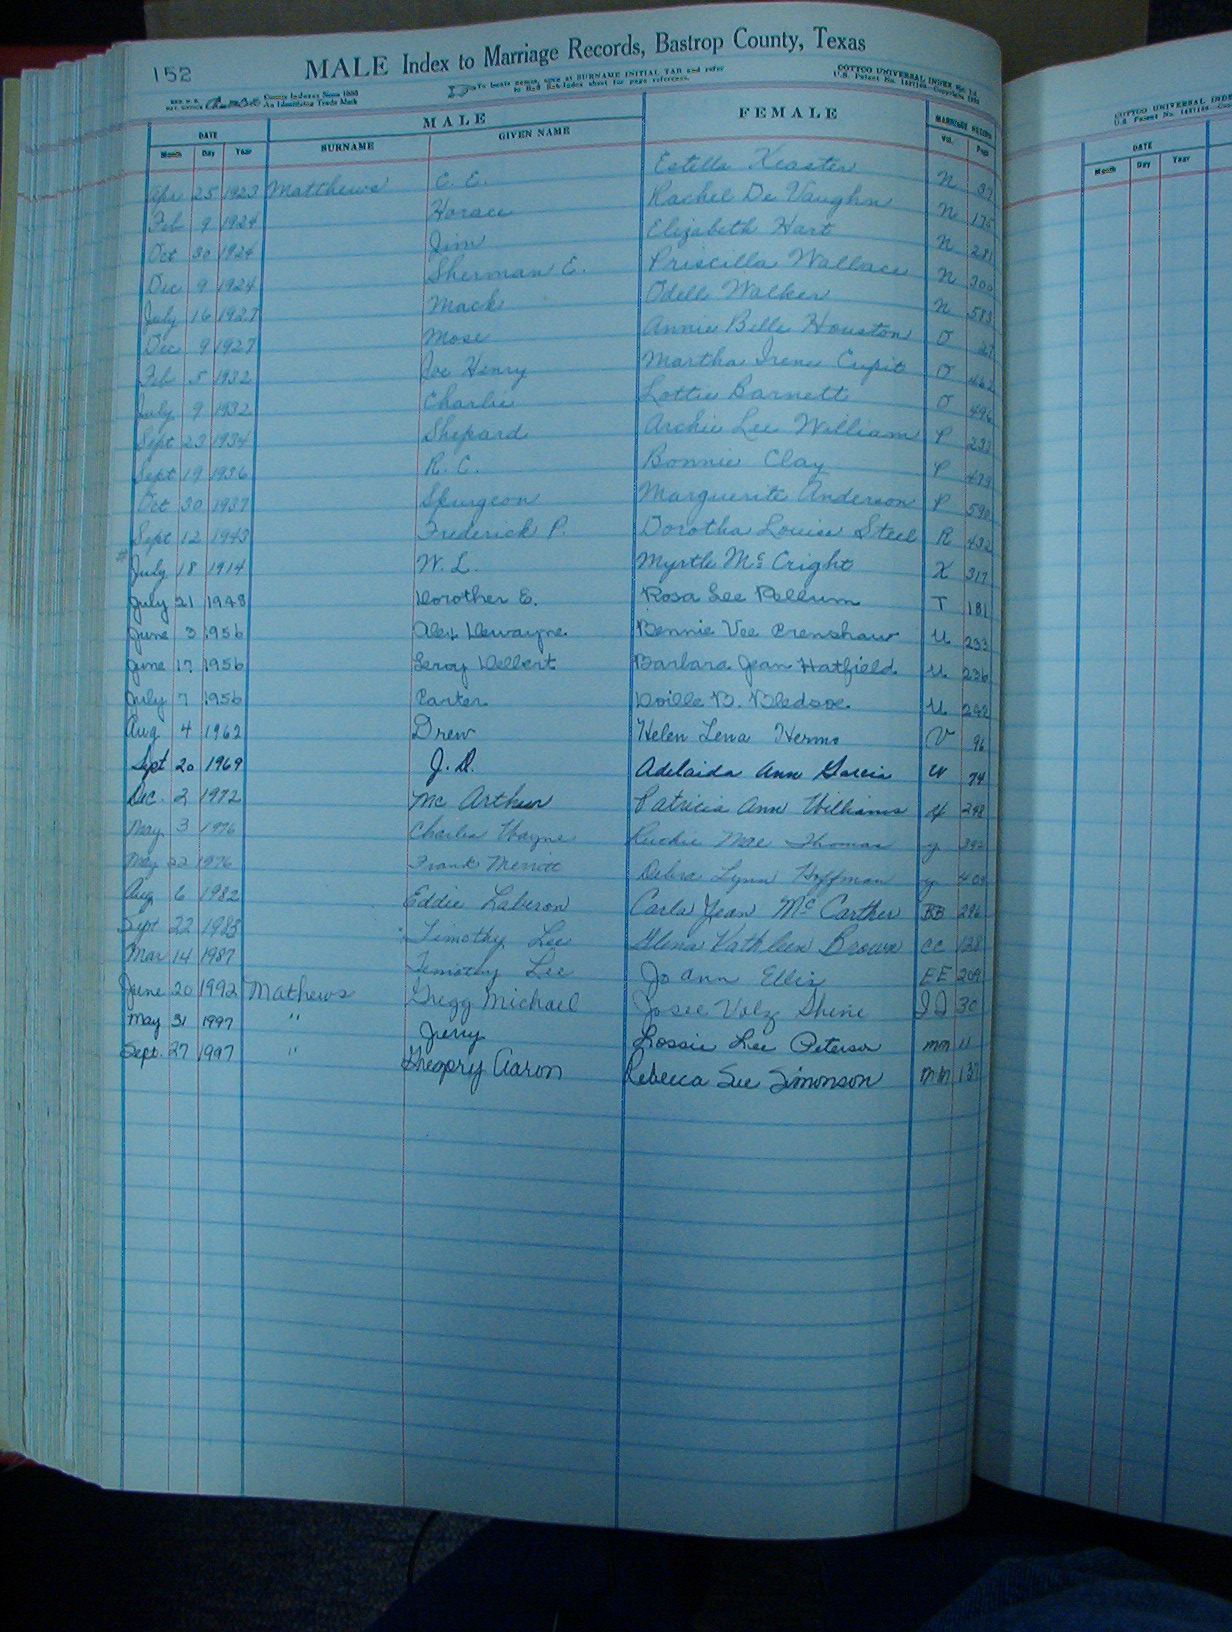 152
MALE Index to Marriage Records, Bastrop County, Texas
To locate names, open at SURNAME INITIAL TAB and refer
County Indexes Since 1888
An Identifying Trade Mark
COTTCO UNIVERSAL INDEX
DATE MALE FEMALE MARRIAGE RECORD
Month Day Year SURNAME GIVEN NAME Vol. Page
Apr 25 1923 Matthews C. E. Estella Keaster N 37
Feb 9 1924 Horace Rachel De Vaughn N 175
Oct 30 1924 Jim Elizabeth Hart N 281
Dec 9 1924 Sherman E. Priscilla Wallace N 300
July 16 1927 Mack Odell Walker N 583
Dec 9 1927 Mose Annie Belle Houston O 27
Feb 5 1932 Joe Henry Martha Irene Cupit O 462
July 9 1932 Charlie Lottie Barnett O 496
Sept 23 1934 Shepard Archie Lee William P 233
Sept 19 1936 R. C. Bonnie Clay P 479
Oct 30 1937 Spurgeon Marguerite Anderson P 590
Sept 12 1943 Frederick P. Dorotha Louise Steel R 432
# July 18 1914 W. L. Myrtle McCright X 317
July 21 1948 Dorother E. Rosa Lee Pellum T 181
June 3 1956 Alex Dewayne Bennie Vee Crenshaw U 233
June 17 1956 Leroy Delbert Barbara Jean Hatfield U 236
July 7 1956 Carter Doille B. Bledsoe U 242
Aug 4 1962 Drew Helen Lena Herms V 96
Sept 20 1969 J. D. Adelaida Ann Garcia W 74
Dec. 2 1972 Mc Arthur Patricia Ann Williams 248
May 3 1976 Charles Wayne Ruthie Mae Thomas y 392
May 22 1976 Frank Merritt Debra Lynn Hoffman y 409
Aug 6 1982 Eddie Laberon Carla Jean McCarther BB 296
Sept 22 1983 Timothy Lee Glena Kathleen Brown CC 128
Mar 14 1987 Timothy Lee Jo Ann Ellis EE 209
June 20 1992 Mathews Gregg Michael Josee Volz Shine JJ 30
May 31 1997 " Jerry Lossie Lee Peterson mm 11
Sept. 27 1997 " Gregory Aaron Rebecca Sue Simonson mm 137
COTTCO UNIVERSAL
DATE
Month Day Year